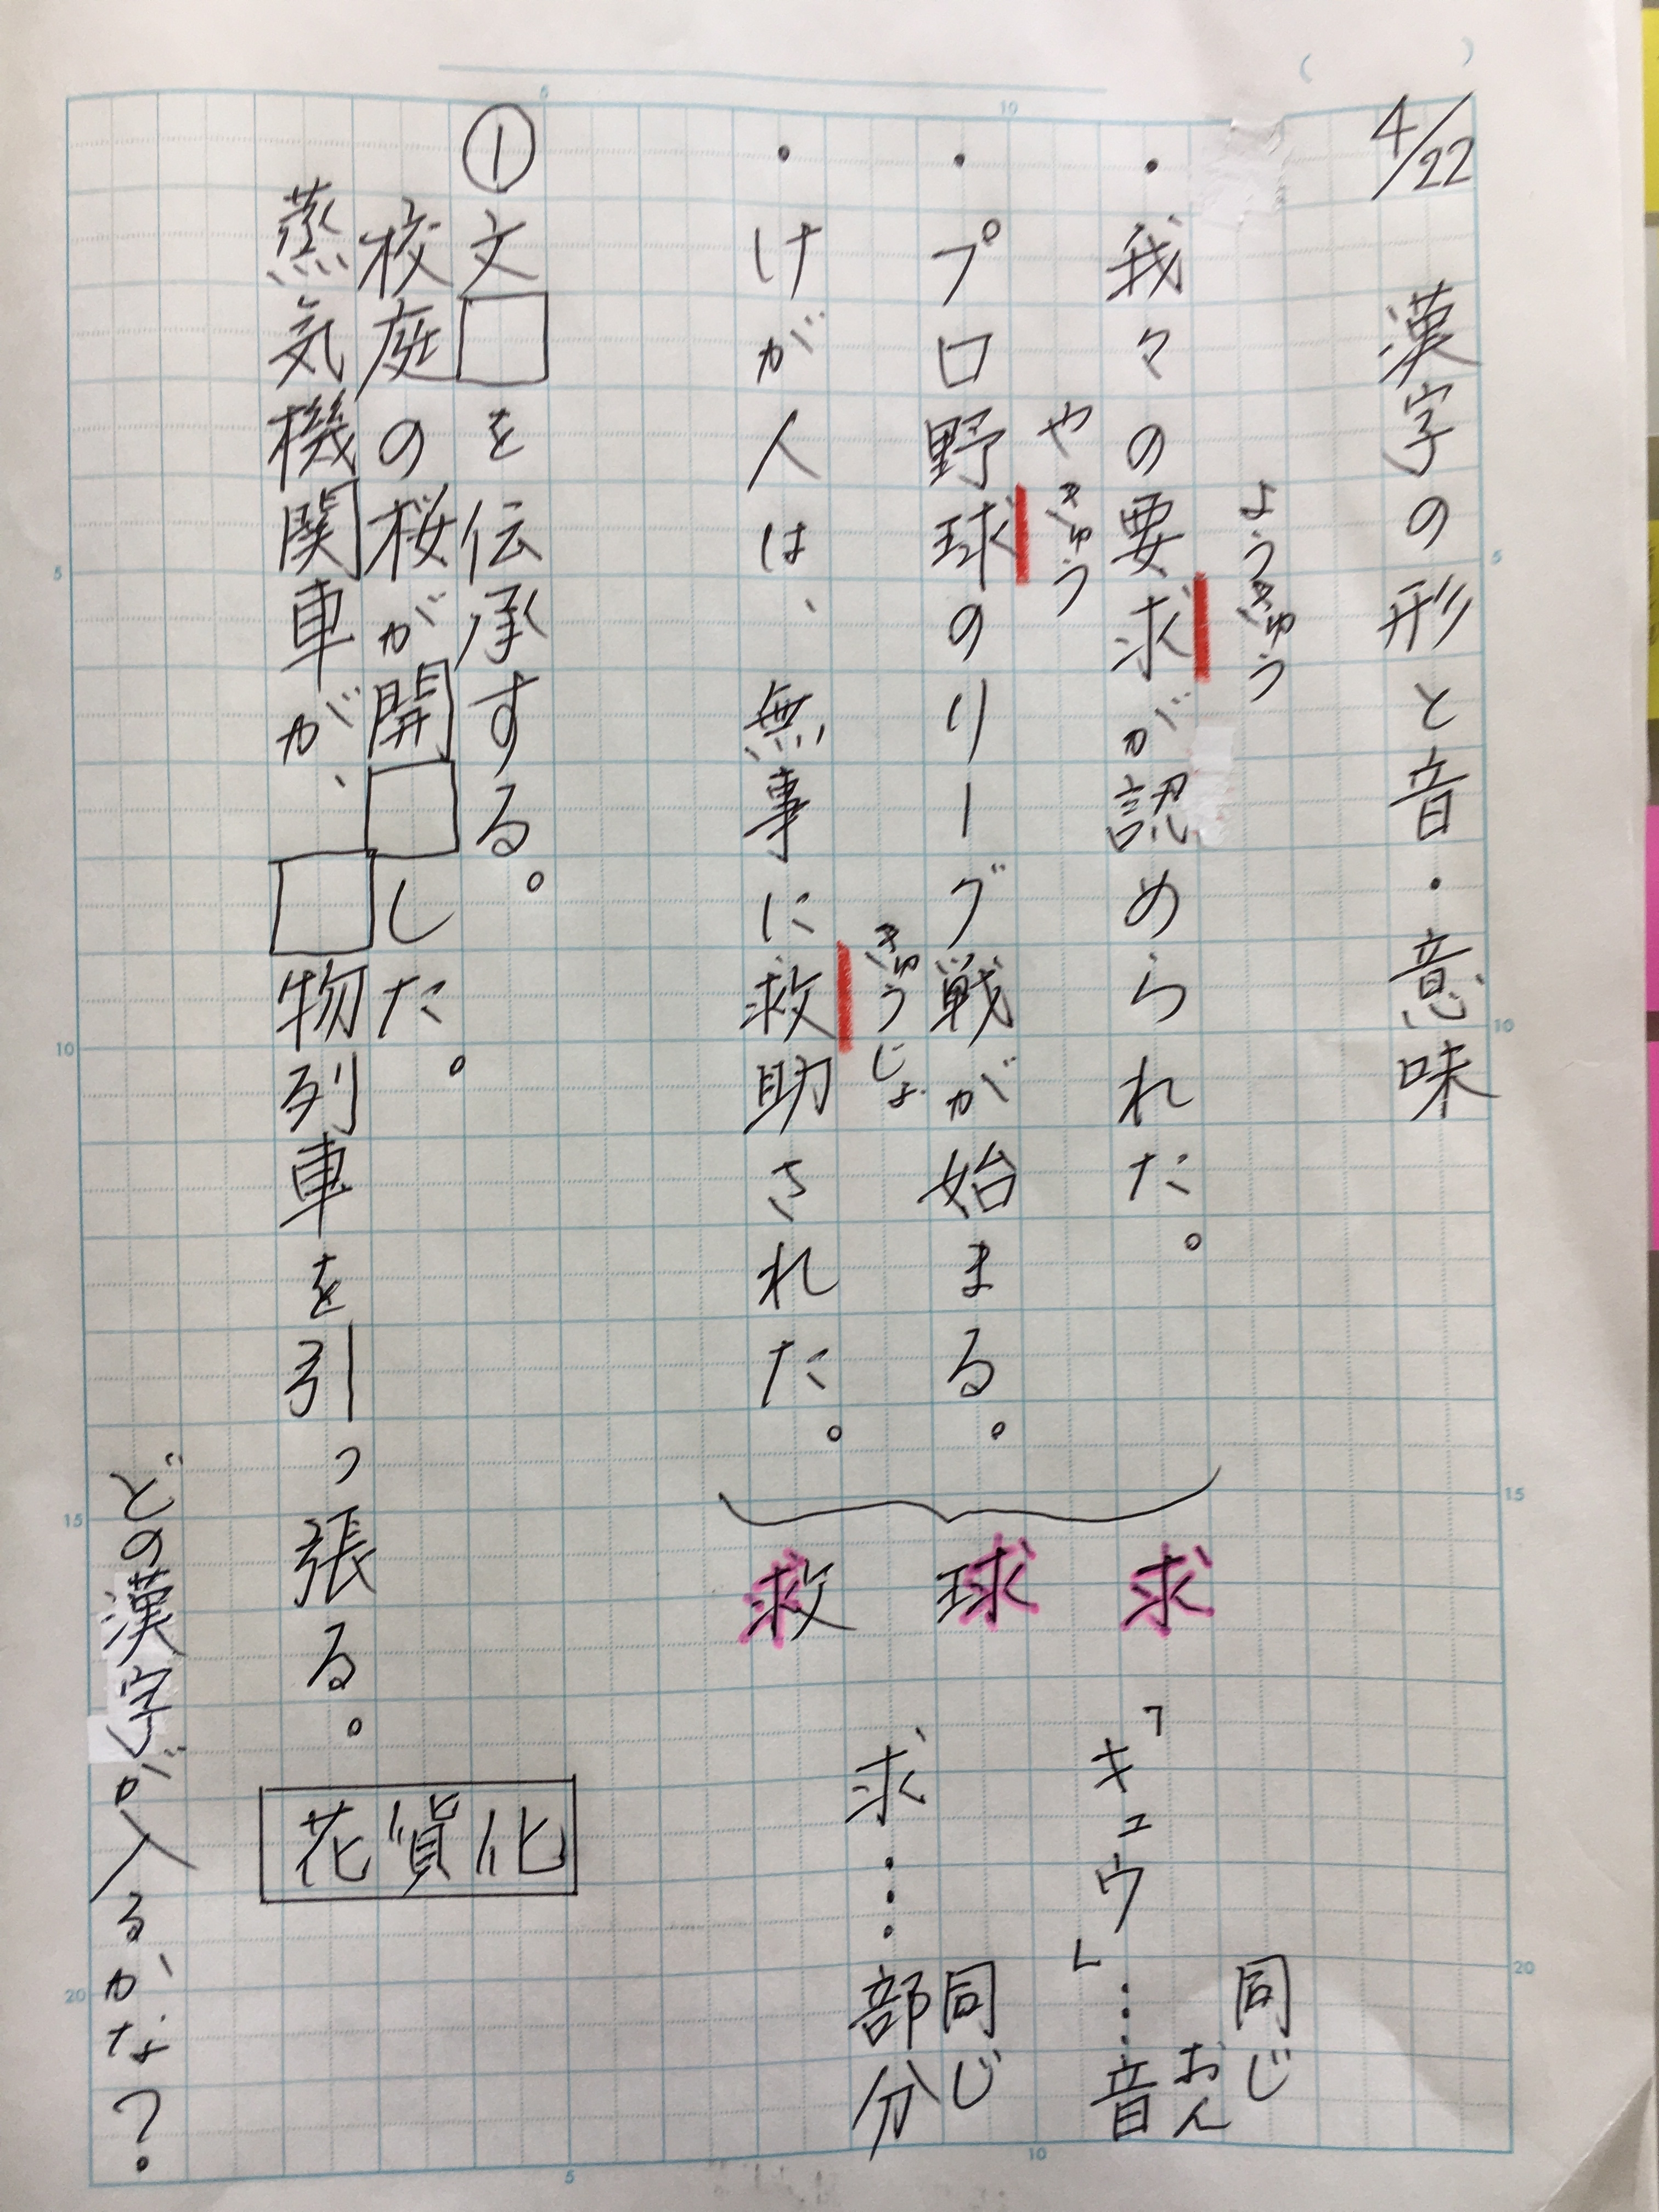 4/22
漢字の形と音・意味
ようきゅう
・我々の要求が認められた。
やきゅう
・プロ野球のリーグ戦が始まる。
きゅうじょ
・けが人は、無事に救助された。
求
球
救
同じ
おん
「キュウ」…音
同じ
求…部分
①文□を伝承する。
校庭の桜が開□した。
蒸気機関車が、□物列車を引っ張る。
化
貨
花
どの漢字が入るかな？
5
10
5
10
15
20
5
10
15
20
5
10